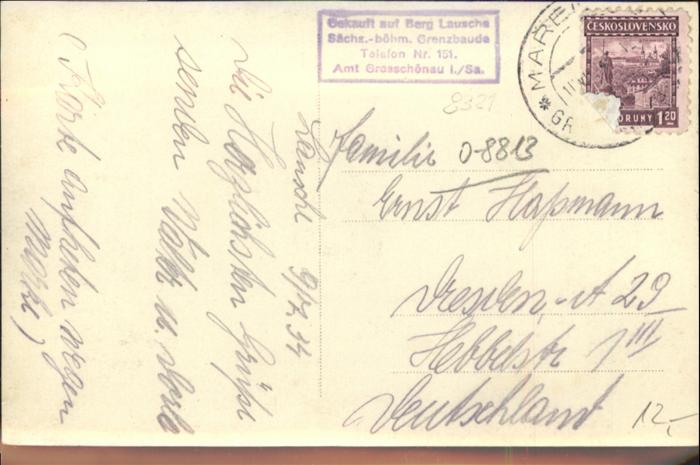 Gekauft auf Berg Lausche
Sächs.-böhm. Grenzbaude
Telefon Nr. 151.
Amt Grossschönau i./Sa.
ČESKOSLOVENSKO
KORUNY 1.20
* MARE
GR
8321
0-8813
Lausche 9/7.34
Die Herzlichsten Grüße
senden Walter u.
(Karte aufheben wegen
Marke)
Familie
Ernst Haßmann
Dresden-A 29
Hebbelstr. 1 III
Deutschland
12,-